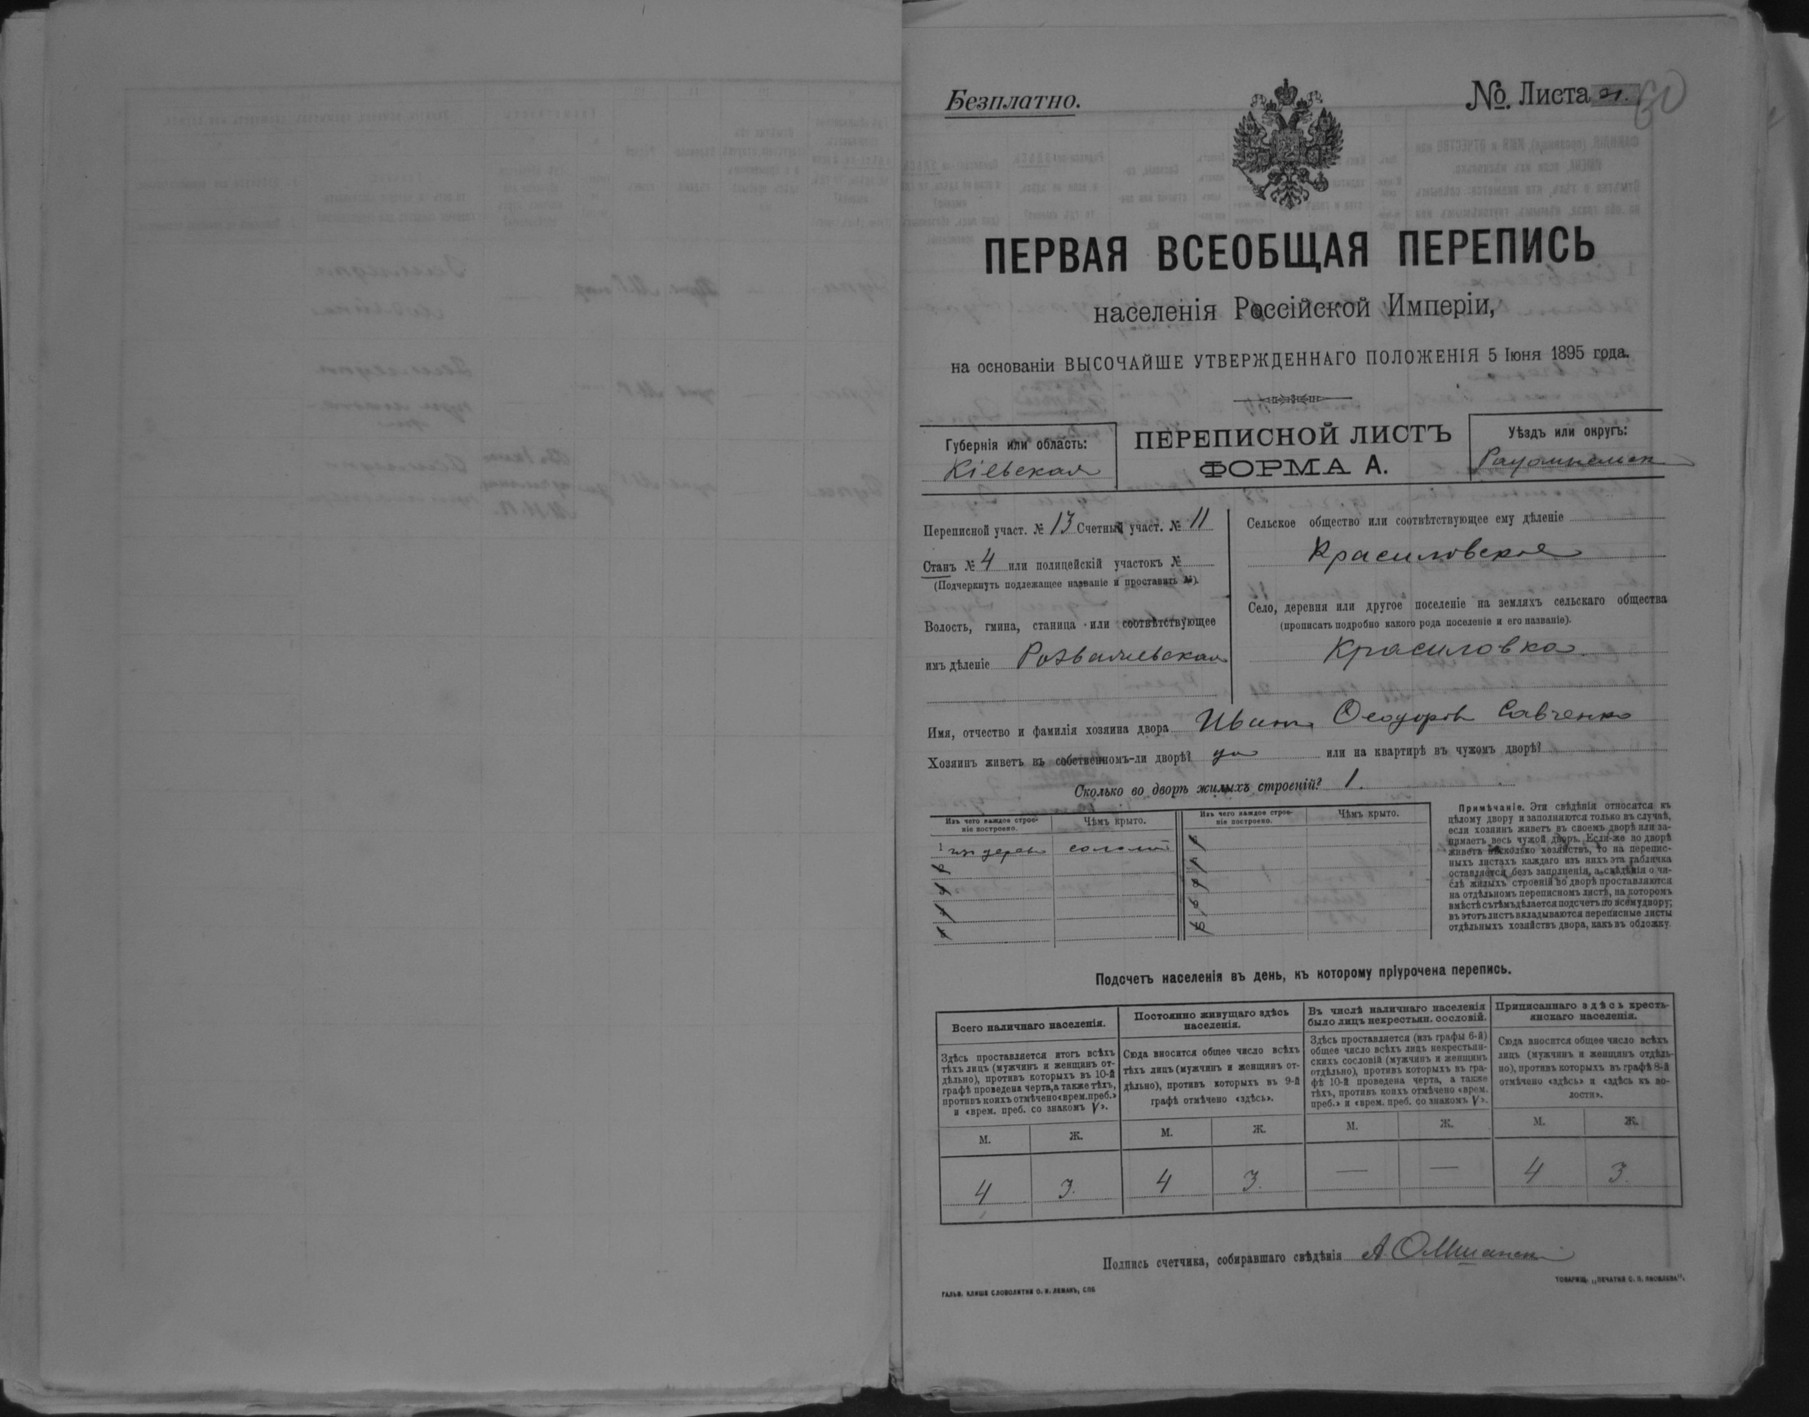 Безплатно.
№. Листа 21.
60
ПЕРВАЯ ВСЕОБЩАЯ ПЕРЕПИСЬ
населенія Россійской Имперіи,
на основаніи ВЫСОЧАЙШЕ УТВЕРЖДЕННАГО ПОЛОЖЕНІЯ 5 Іюня 1895 года.
Губернія или область:
Кіевская
ПЕРЕПИСНОЙ ЛИСТЪ
ФОРМА А.
Уѣздъ или округъ:
Переписной участ. № 13 Счетный участ. № 11
Станъ № 4 или полицейскій участокъ №
(Подчеркнуть подлежащее названіе и проставить №).
Волость, гмина, станица или соотвѣтствующее
имъ дѣленіе
Сельское общество или соотвѣтствующее ему дѣленіе
Красиловское
Село, деревня или другое поселеніе на земляхъ сельскаго общества
(прописать подробно какого рода поселеніе и его названіе).
Красиловка.
Имя, отчество и фамилія хозяина двора Иванъ Ѳеодоровъ Савченко
Хозяинъ живетъ въ собственномъ-ли дворѣ? да или на квартирѣ въ чужомъ дворѣ?
Сколько во дворѣ жилыхъ строеній? 1.
Изъ чего каждое строе-
ніе построено.
Чѣмъ крыто.
Изъ чего каждое строе-
ніе построено.
Чѣмъ крыто.
1 изъ дерева соломой
Примѣчаніе. Эти свѣдѣнія относятся къ
цѣлому двору и заполняются только въ случаѣ,
если хозяинъ живетъ въ своемъ дворѣ или за-
нимаетъ весь чужой дворъ. Если-же во дворѣ
живетъ нѣсколько хозяйствъ, то на перепис-
ныхъ листахъ каждаго изъ нихъ эта табличка
оставляется безъ заполненія, а свѣдѣнія о чи-
слѣ жилыхъ строеній во дворѣ проставляются
на отдѣльномъ переписномъ листѣ, на которомъ
вмѣстѣ съ тѣмъ дѣлается подсчетъ по всему двору;
въ этотъ листъ вкладываются переписные листы
отдѣльныхъ хозяйствъ двора, какъ въ обложку.
Подсчетъ населенія въ день, къ которому пріурочена перепись.
Всего наличнаго населенія.
Здѣсь проставляется итогъ всѣхъ
тѣхъ лицъ (мужчинъ и женщинъ от-
дѣльно), противъ которыхъ въ 10-й
графѣ проведена черта, а также тѣхъ,
противъ коихъ отмѣчено «врем. преб.»
и «врем. преб. со знакомъ V».
Постоянно живущаго здѣсь
населенія.
Сюда вносится общее число всѣхъ
тѣхъ лицъ (мужчинъ и женщинъ от-
дѣльно), противъ которыхъ въ 9-й
графѣ отмѣчено «здѣсь».
Въ числѣ наличнаго населенія
было лицъ некрестьян. сословій.
Здѣсь проставляется (изъ графы 6-й)
общее число всѣхъ лицъ некрестьян-
скихъ сословій (мужчинъ и женщинъ
отдѣльно), противъ которыхъ въ гра-
фѣ 10-й проведена черта, а также
тѣхъ, противъ коихъ отмѣчено «врем.
преб.» и «врем. преб. со знакомъ V».
Приписаннаго здѣсь кресть-
янскаго населенія.
Сюда вносится общее число всѣхъ
лицъ (мужчинъ и женщинъ отдѣль-
но), противъ которыхъ въ графѣ 8-й
отмѣчено «здѣсь» и «здѣсь въ во-
лости».
М. Ж. М. Ж. М. Ж. М. Ж.
4 3. 4 3. — — 4 3.
Подпись счетчика, собиравшаго свѣдѣнія
ГАЛЬВ. КЛИШЕ СЛОВОЛИТНИ О. И. ЛЕМАНЪ, СПБ
ТОВАРИЩ. „ПЕЧАТНЯ С. П. ЯКОВЛЕВА".